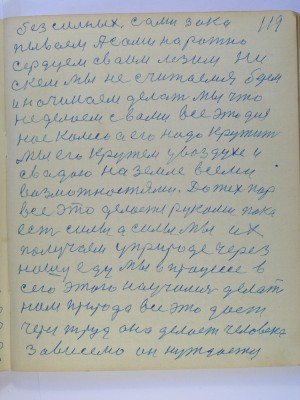 119
без сильных, сами зака
пываем А сами на рожно
сердцем своим лезим Ни
с кем мы не считаемся, бдем
и начинаем делат Мы что
не делаем с вами все это дя
ное колесо а его надо крутит
Мы его крутем у воздухе и
свадою на земле всеми
возможностями. До тех пор
все это делаем руками пока
ест силы а силы мы их
получаем у природе через
нашу еду Мы в процессе в
сего этого научилися делат
нам природа все это дает
через труд она делает человека
зависемо он нуждается